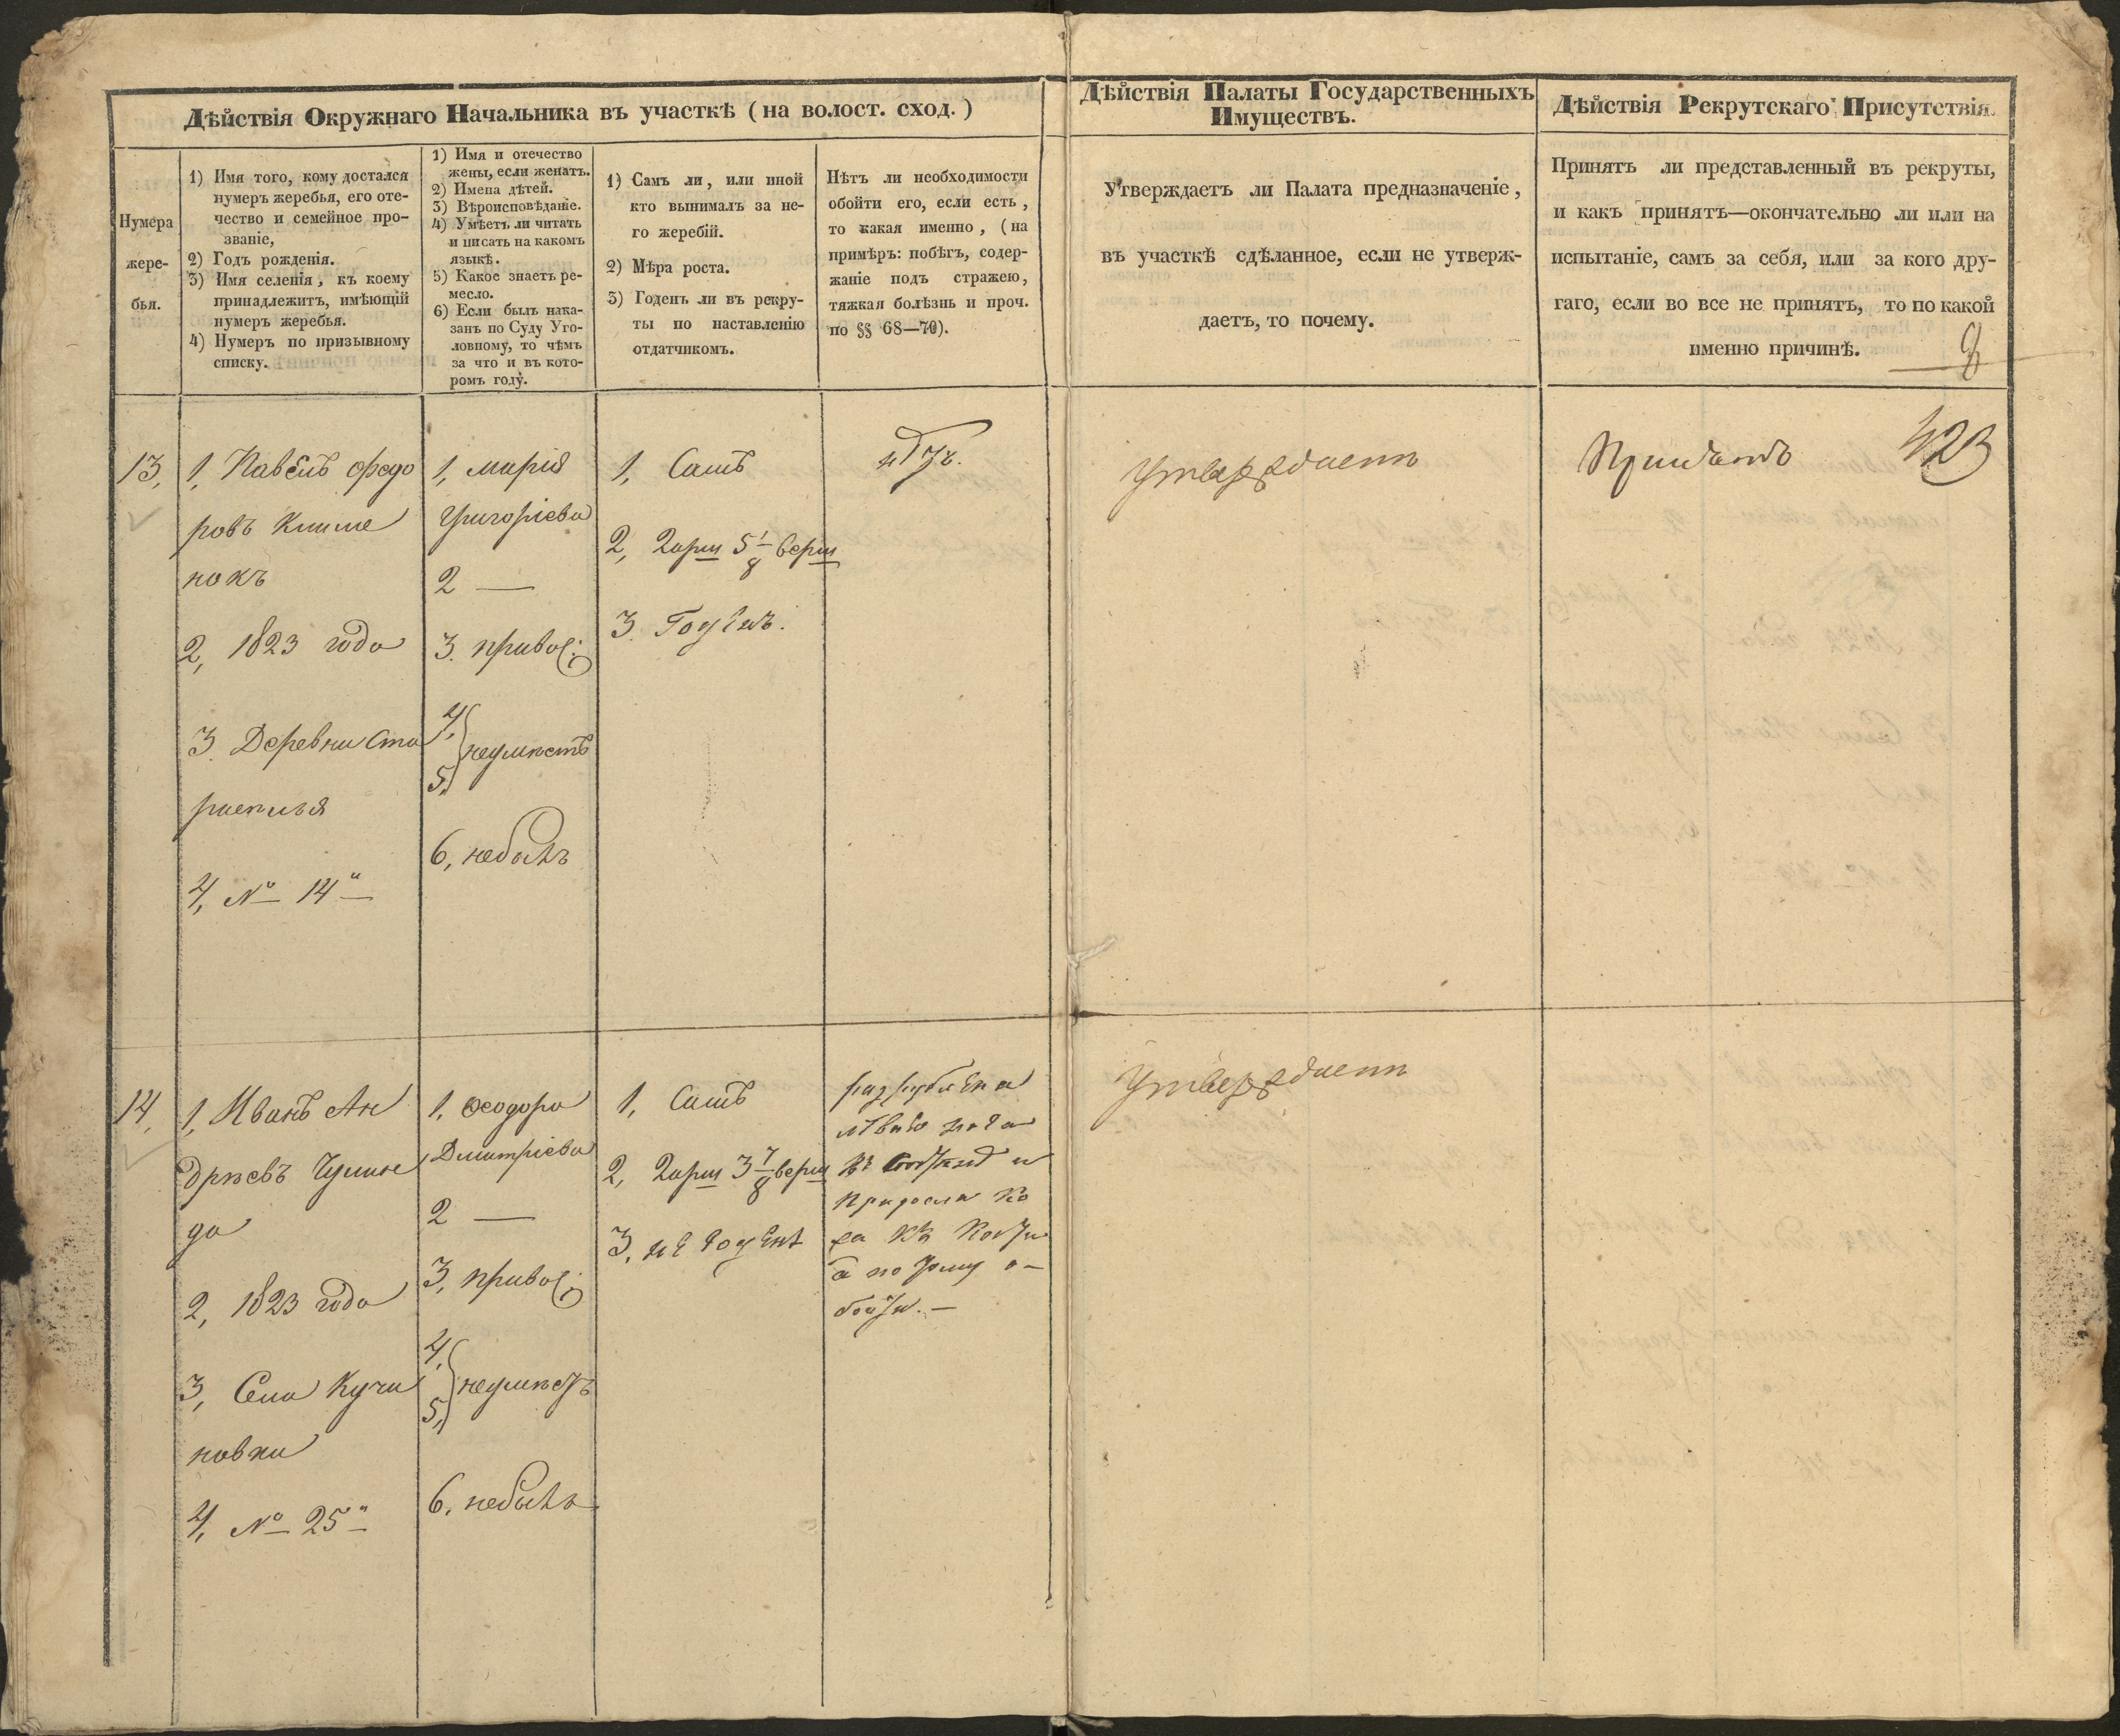 Дѣйствія Окружнаго Начальника въ участкѣ (на волост. сход.)
Дѣйствія Палаты Государственныхъ
Имуществъ.
Дѣйствія Рекрутскаго Присутствія.
Нумера
жере-
бья.
1) Имя того, кому достался
нумеръ жеребья, его оте-
чество и семейное про-
званіе,
2) Годъ рожденія.
3) Имя селенія, къ коему
принадлежитъ, имѣющій
нумеръ жеребья.
4) Нумеръ по призывному
списку.
1) Имя и отечество
жены, если женатъ.
2) Имена дѣтей.
3) Вѣроисповѣданіе.
4) Умѣетъ ли читать
и писать на какомъ
языкѣ.
5) Какое знаетъ ре-
месло.
6) Если былъ нака-
занъ по Суду Уго-
ловному, то чѣмъ
за что и въ кото-
ромъ году.
1) Самъ ли, или иной
кто вынималъ за не-
го жеребій.
2) Мѣра роста.
3) Годенъ ли въ рекру-
ты по наставленію
отдатчикомъ.
Нѣтъ ли необходимости
обойти его, если есть,
то какая именно, (на
примѣръ: побѣгъ, содер-
жаніе подъ стражею,
тяжкая болѣзнь и проч.
по §§ 68—70).
Утверждаетъ ли Палата предназначеніе,
въ участкѣ сдѣланное, если не утверж-
даетъ, то почему.
Принятъ ли представленный въ рекруты,
и какъ принятъ—окончательно ли или на
испытаніе, самъ за себя, или за кого дру-
гаго, если во все не принятъ, то по какой
именно причинѣ.
13,
1, Павелъ Федо
ровъ Климе
нокъ
2, 1823 года
3. Деревни Ста
раселья
4, № 14"
1, Марія
Григоріева
2 —
3. правос:
4,
5,
неумѣетъ
6, небылъ
1, Самъ
2, 2 арш 5 1/8 верш
3. Годенъ.
нѣтъ.
Утверждаетъ
Принятъ
423
14,
1, Иванъ Ан
дрѣевъ
да
2, 1823 года
3, Села Кучи
новки
4, № 25"
1, Феодора
Димитріева
2 —
3, правос:
4,
5,
неумѣетъ
6, небылъ
1, Самъ
2, 2 арш 3 7/8 верш
3, не годенъ
разрублена
лѣвая нога
и
приросла ко
жа къ кости
а потому о-
бойти. —
Утверждаетъ